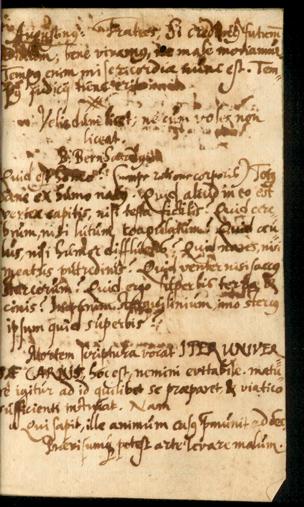 Augustinq: Fratres, Si creditis futurum
bene vivamus, ne male moriamur
Tempq enim misericordiæ nunc est. Tem-
pq judicij
Velis dum licet, ne cum voles non
liceat.
B: Bernardq
Quid est homo? (semper ratione corporis) Totq
sane ex humo natq. Quid aliud in eo est
vertex capitis, nisi testa fictilis? Quid cere
brum, nisi lutum coagulatum? Quid ocu
lus, nisi humor diffluens? Quid nares, nisi
meatus putredinis? Quid venter nisi saccq
stercorum? Quid ergo superbis terra &
cinis? sterquilinium, imo sterq
ipsum quid superbis?
Mortem scriptura vocat ITER UNIVER
SÆ CARNIS, hoc est, nemini evitabile. matu
re igitur ad id quilibet se præparet, & viatico
sufficienti instruat. Nam
Qui sapit, ille animum casq præmunit ad oes
Prævisumq potest arte levare malum.